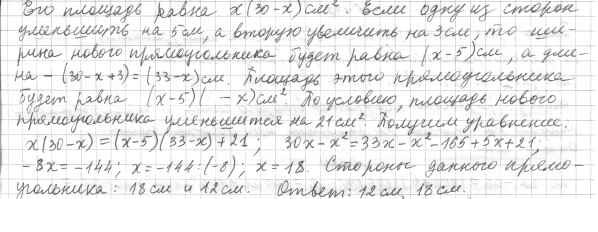 Его площадь равна x(30-x)см². Если одну из сторон
уменьшить на 5см, а вторую увеличить на 3см, то ши-
рина нового прямоугольника будет равна (x-5)см, а дли-
на - (30-x+3)=(33-x)см. Площадь этого прямоугольника
будет равна (x-5)( -x)см². По условию, площадь нового
прямоугольника уменьшится на 21см². Получим уравнение.
x(30-x)=(x-5)(33-x)+21; 30x-x²=33x-x²-165+5x+21;
-8x=-144; x=-144:(-8); x=18. Стороны данного прямо-
угольника: 18см и 12см. Ответ: 12см, 18см.